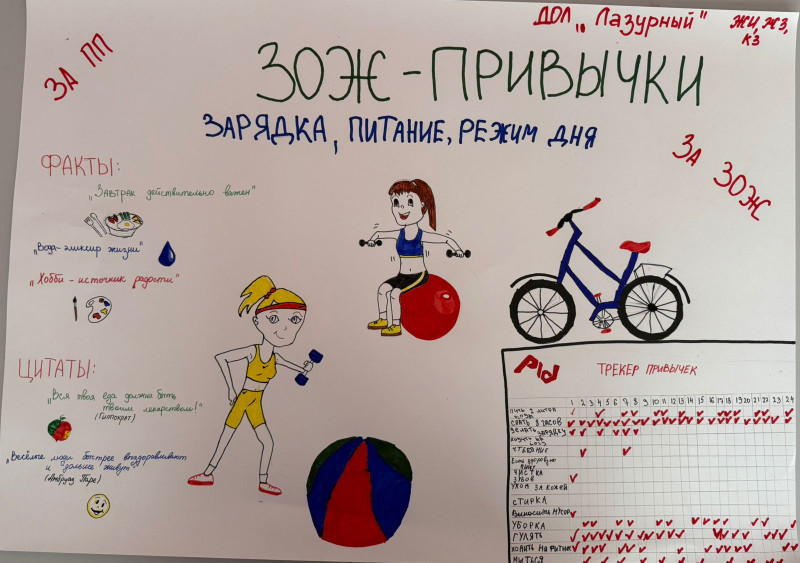 ДОЛ „Лазурный"
ЖИ, ЖЗ,
КЗ
ЗА ПП
ЗОЖ-ПРИВЫЧКИ
ЗАРЯДКА, ПИТАНИЕ, РЕЖИМ ДНЯ
ЗА ЗОЖ
ФАКТЫ:
„Завтрак действительно важен"
„Вода-эликсир жизни"
„Хобби - источник радости"
ЦИТАТЫ:
„Вся твоя еда должна быть
твоим лекарством!"
(Гиппократ)
„Весёлые люди быстрее выздоравливают
и дольше живут"
(Амбруаз Паре)
ТРЕКЕР ПРИВЫЧЕК
1 2 3 4 5 6 7 8 9 10 11 12 13 14 15 16 17 18 19 20 21 22 23 24
ПИТЬ 2 ЛИТРА
ВОДЫ
СПАТЬ 8 ЧАСОВ
ДЕЛАТЬ ЗАРЯДКУ
ЧТЕНИЕ
ЧИСТКА
ЗУБОВ
УХОД ЗА КОЖЕЙ
СТИРКА
ВЫНОСИТЬ МУСОР
УБОРКА
ГУЛЯТЬ
ХОДИТЬ НА ФИТНЕС
МЫТЬСЯ